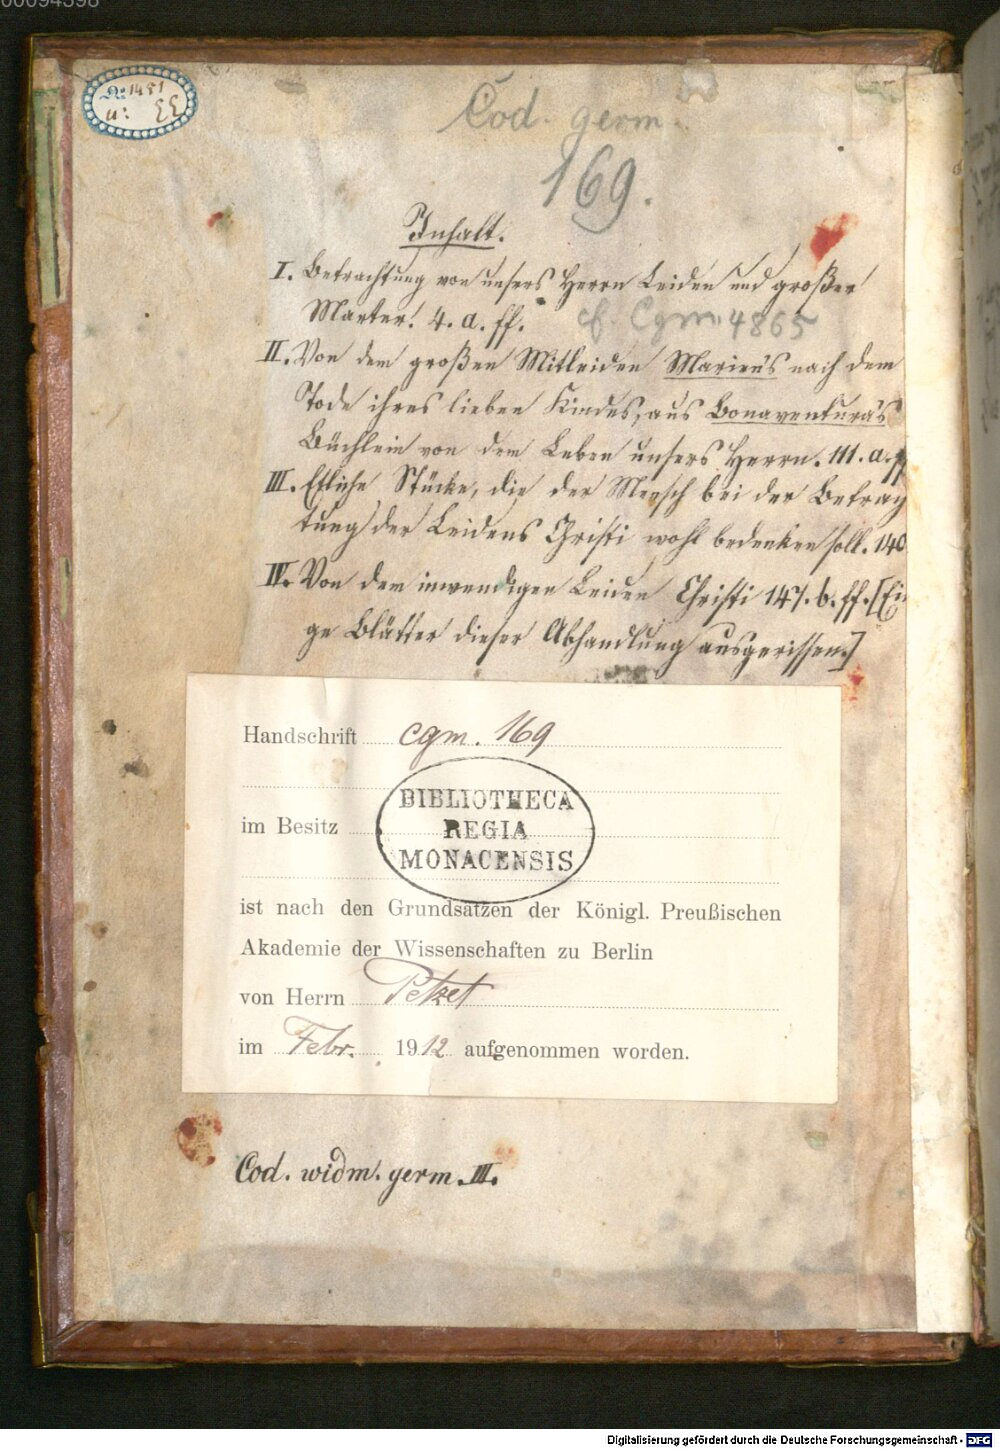 00094398
No 1451
a: EE
Cod. germ.
169.
Inhalt.
I. Betrachtung von unsers Herrn Leiden und großer
Marter. 4. a. ff. cf. Cgm 4865
II. Von dem großen Mitleiden Mariens nach dem
Tode ihres lieben Kindes, aus Bonaventuras
Büchlein von dem Leben unsers Herrn. 111. a.
III. Etliche Stücke, die der Mensch bei der Betrach
tung der Leidens Christi wohl bedenken soll. 140
IV. Von dem inwendigen Leiden Christi 147. b. ff. [Ei
ge Blätter dieser Abhandlung ausgerissen.]
Handschrift cgm. 169
im Besitz
BIBLIOTHECA
REGIA
MONACENSIS
ist nach den Grundsätzen der Königl. Preußischen
Akademie der Wissenschaften zu Berlin
von Herrn Petzet
im Febr. 1912 aufgenommen worden.
Cod. widm. germ. III.
Digitalisierung gefördert durch die Deutsche Forschungsgemeinschaft - DFG